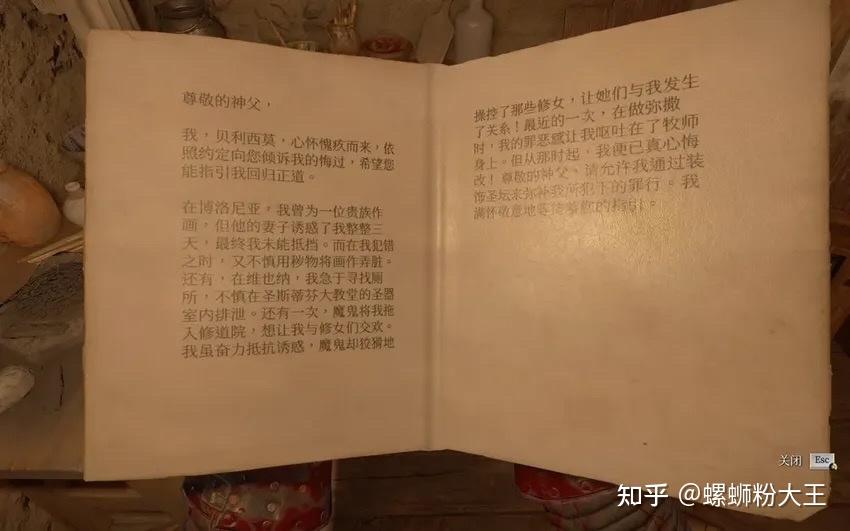 尊敬的神父，
我，贝利西莫，心怀愧疚而来，依
照约定向您倾诉我的悔过，希望您
能指引我回归正道。
在博洛尼亚，我曾为一位贵族作
画，但他的妻子诱惑了我整整三
天，最终我未能抵挡。而在我犯错
之时，又不慎用秽物将画作弄脏。
还有，在维也纳，我急于寻找厕
所，不慎在圣斯蒂芬大教堂的圣器
室内排泄。还有一次，魔鬼将我拖
入修道院，想让我与修女们交欢。
我虽奋力抵抗诱惑，魔鬼却狡猾地
操控了那些修女，让她们与我发生
了关系！最近的一次，在做弥撒
时，我的罪恶感让我呕吐在了牧师
身上。但从那时起，我便已真心悔
改！尊敬的神父，请允许我通过装
饰圣坛来弥补我所犯下的罪行。我
满怀敬意地等待着您的指引。
关闭 Esc
知乎 @螺蛳粉大王